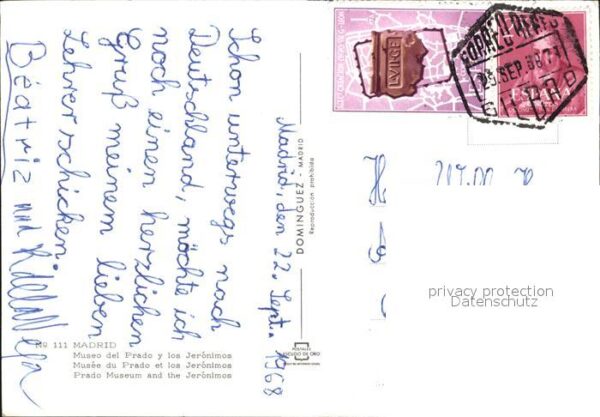 Madrid, den 22. Sept. 1968
Schon unterwegs nach
Deutschland, möchte ich
noch einen herzlichen
Gruß meinem lieben
Lehrer schicken.
Béatriz und
Nº 111 MADRID
Museo del Prado y los Jerónimos
Musée du Prado et los Jerónimos
Prado Museum and the Jerónimos
DOMINGUEZ - MADRID
Reproducción prohibida
POSTALES
ESCUDO DE ORO
CORREO AEREO
SEP
BILBAO
ESPAÑA
privacy protection
Datenschutz